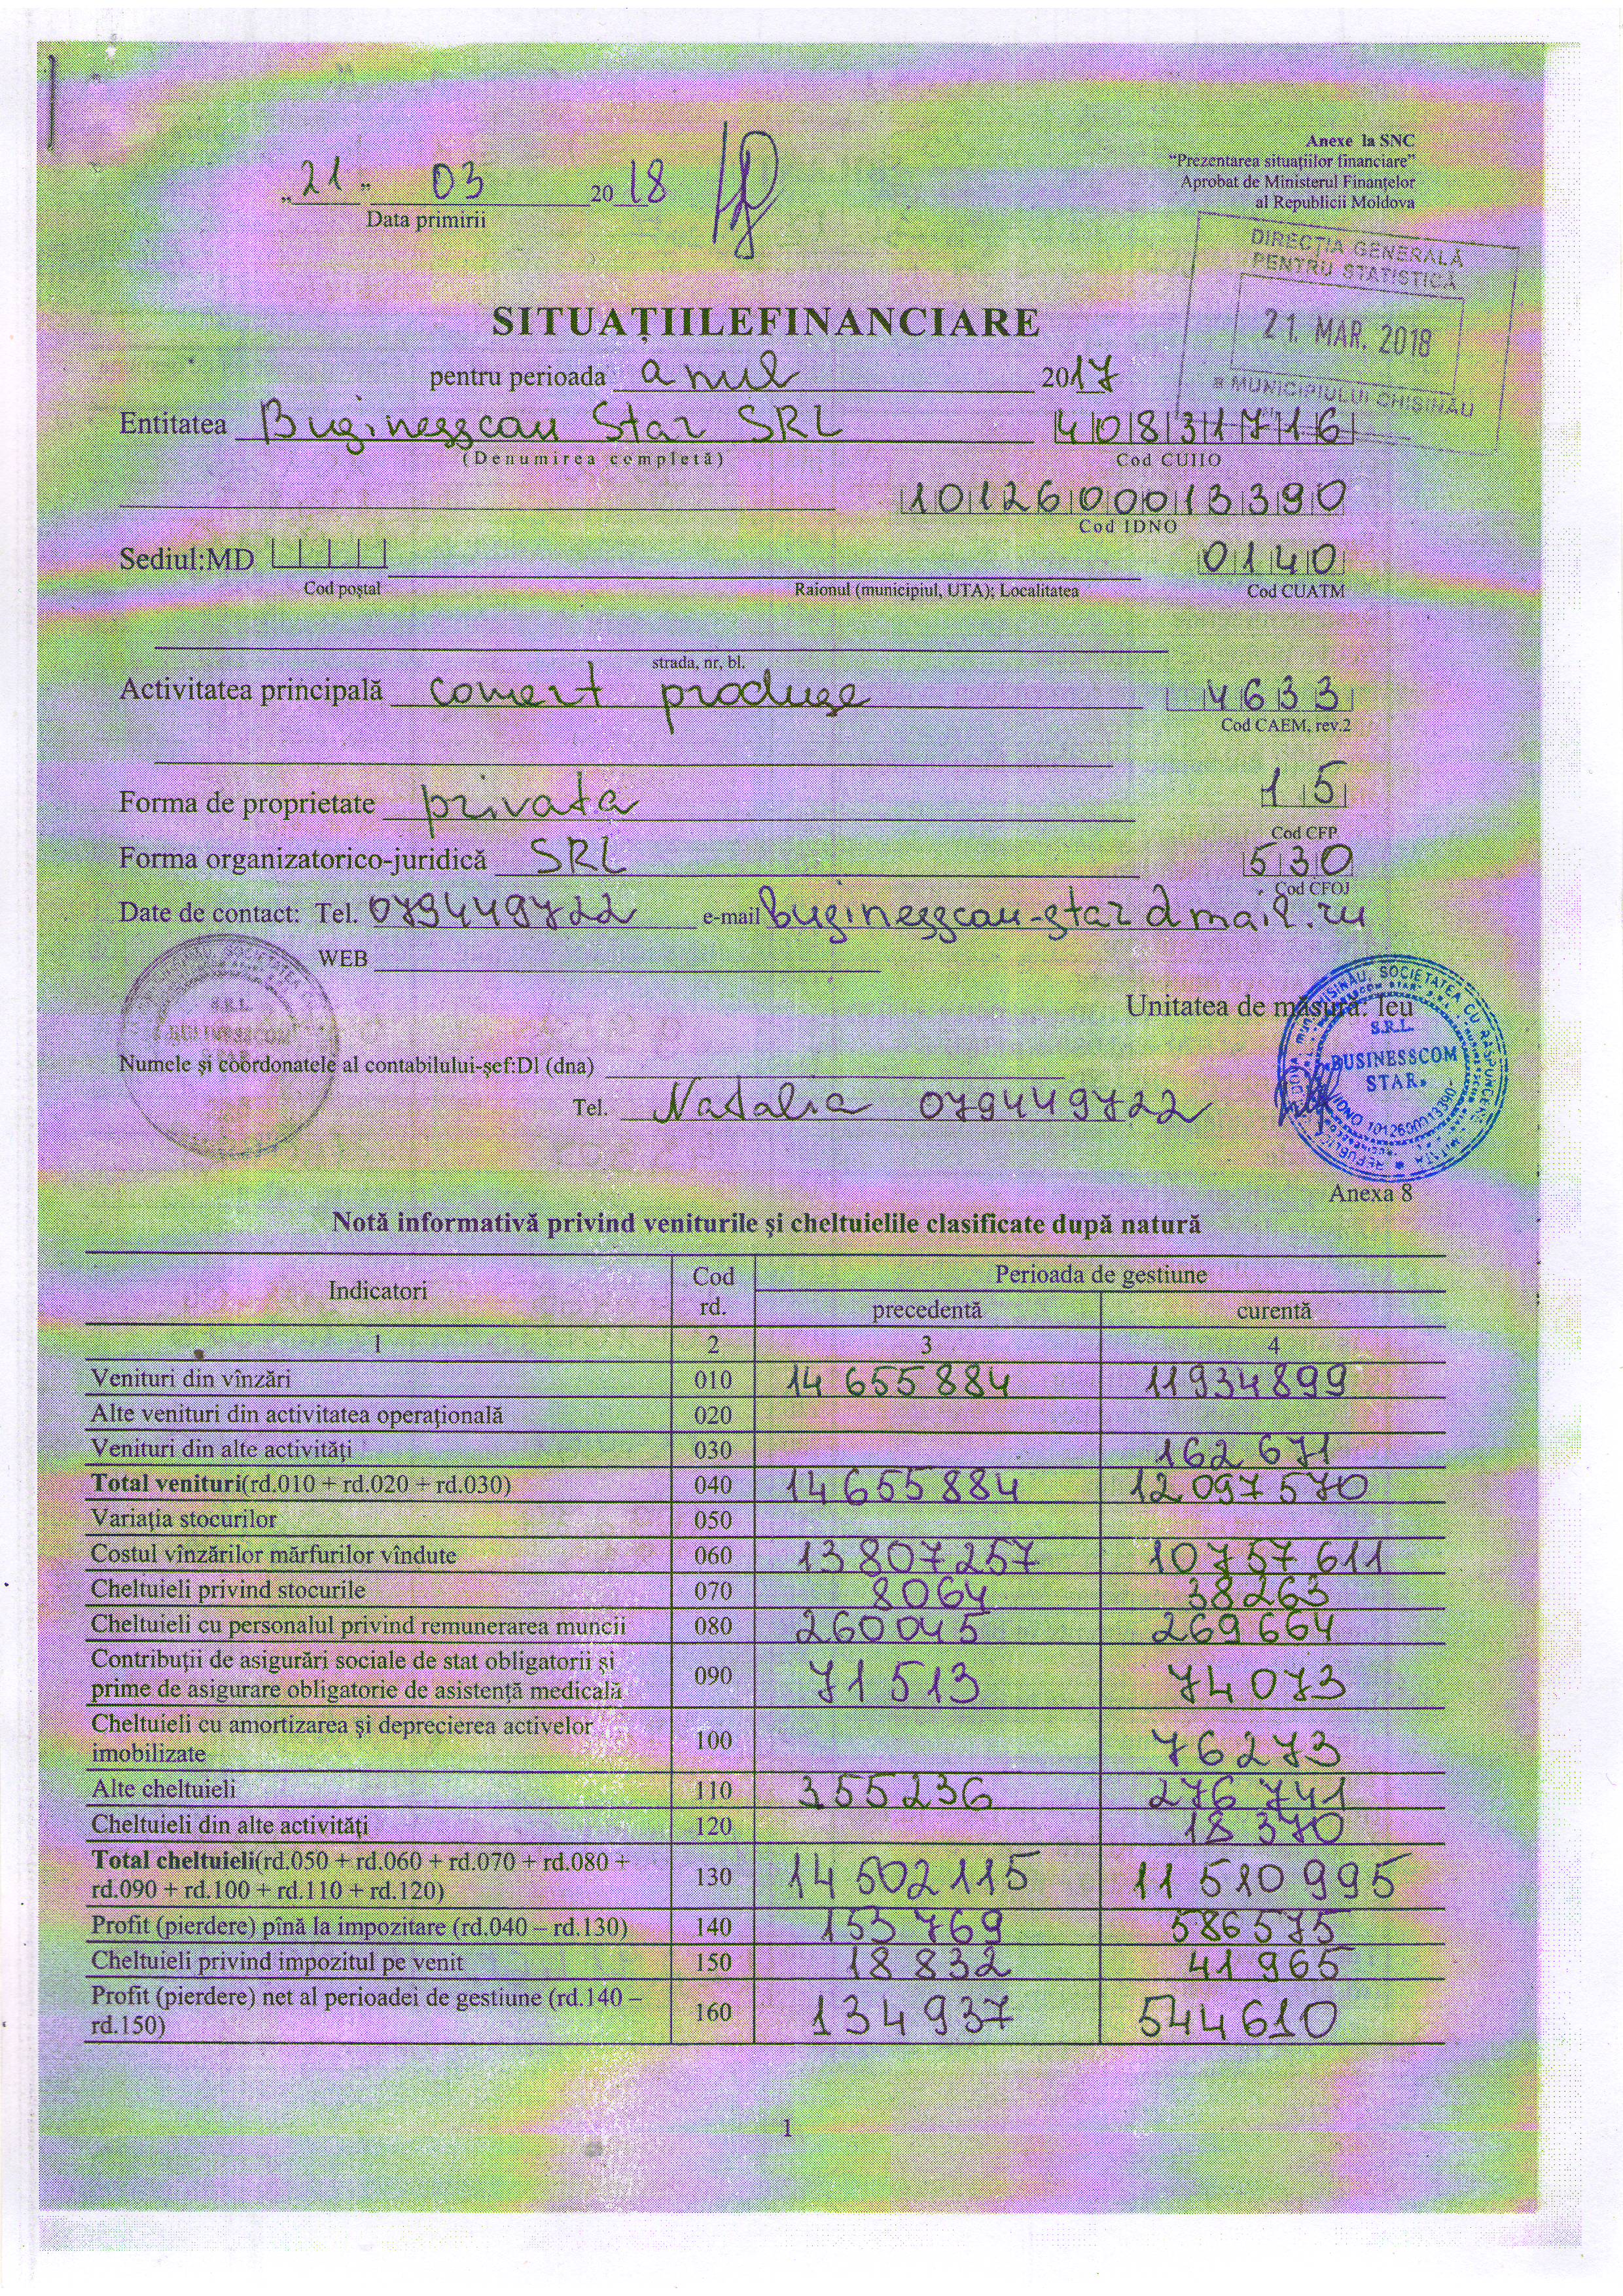 „21„ 03 2018
Data primirii
Anexe la SNC
“Prezentarea situațiilor financiare”
Aprobat de Ministerul Finanțelor
al Republicii Moldova
DIRECȚIA GENERALĂ
PENTRU STATISTICĂ
21. MAR. 2018
a MUNICIPIULUI CHIȘINĂU
SITUAȚIILEFINANCIARE
pentru perioada anul 2017
Entitatea Businesscom Star SRL 40831716
(Denumirea completă) Cod CUIIO
1012600013390
Cod IDNO
Sediul:MD 0140
Cod poștal Raionul (municipiul, UTA); Localitatea Cod CUATM
strada, nr, bl.
Activitatea principală comert produse 4633
Cod CAEM, rev.2
Forma de proprietate privata 15
Cod CFP
Forma organizatorico-juridică SRL 530
Cod CFOJ
Date de contact: Tel. 079449722 e-mail businesscom-star@mail.ru
WEB
Unitatea de măsură: leu
S.R.L.
«BUSINESSCOM
STAR»
Numele și coordonatele al contabilului-șef:Dl (dna)
Tel. Natalia 079449722
S.R.L.
«BUSINESSCOM
STAR»
Anexa 8
Notă informativă privind veniturile și cheltuielile clasificate după natură
Indicatori Cod rd. Perioada de gestiune
precedentă curentă
1 2 3 4
Venituri din vînzări 010 14 655 884 11934899
Alte venituri din activitatea operațională 020
Venituri din alte activități 030 162 671
Total venituri(rd.010 + rd.020 + rd.030) 040 14 655 884 12 097 570
Variația stocurilor 050
Costul vînzărilor mărfurilor vîndute 060 13 807 257 10 757 611
Cheltuieli privind stocurile 070 8064 38263
Cheltuieli cu personalul privind remunerarea muncii 080 260 045 269 664
Contribuții de asigurări sociale de stat obligatorii și
prime de asigurare obligatorie de asistență medicală 090 71 513 74 073
Cheltuieli cu amortizarea și deprecierea activelor
imobilizate 100 76273
Alte cheltuieli 110 355236 276 741
Cheltuieli din alte activități 120 18 370
Total cheltuieli(rd.050 + rd.060 + rd.070 + rd.080 +
rd.090 + rd.100 + rd.110 + rd.120) 130 14 502 115 11 510 995
Profit (pierdere) pînă la impozitare (rd.040 – rd.130) 140 153 769 586 575
Cheltuieli privind impozitul pe venit 150 18 832 41 965
Profit (pierdere) net al perioadei de gestiune (rd.140 –
rd.150) 160 134 937 544 610
1